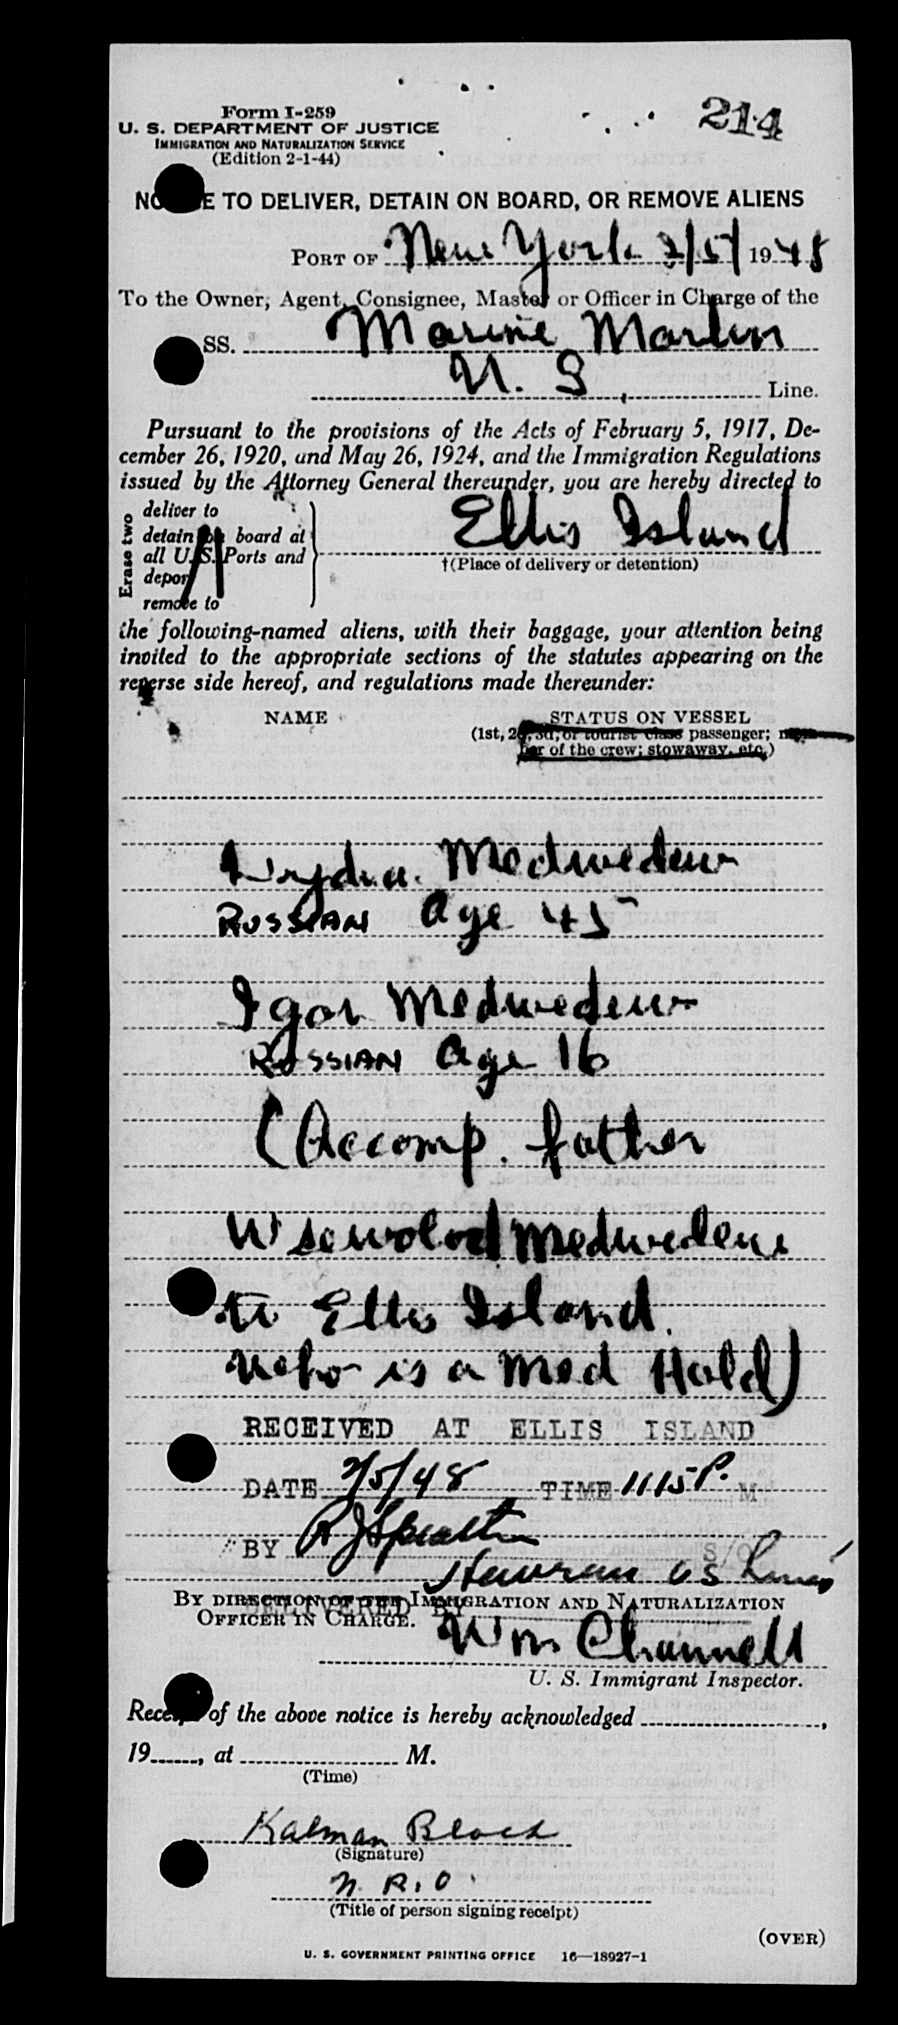 214
Form I-259
U. S. DEPARTMENT OF JUSTICE
IMMIGRATION AND NATURALIZATION SERVICE
(Edition 2-1-44)
NOTICE TO DELIVER, DETAIN ON BOARD, OR REMOVE ALIENS
PORT OF New York 2/5/ 1948
To the Owner, Agent, Consignee, Master or Officer in Charge of the
SS. Marine Marlin
U. S Line.
Pursuant to the provisions of the Acts of February 5, 1917, De-
cember 26, 1920, and May 26, 1924, and the Immigration Regulations
issued by the Attorney General thereunder, you are hereby directed to
Erase two
deliver to
detain on board at
all U. S. Ports and
deport
remove to
Ellis Island
†(Place of delivery or detention)
the following-named aliens, with their baggage, your attention being
invited to the appropriate sections of the statutes appearing on the
reverse side hereof, and regulations made thereunder:
NAME STATUS ON VESSEL
(1st, 2d, 3d, or tourist class passenger; mem-
ber of the crew; stowaway, etc.)
Lydia Medwedew
RUSSIAN Age 45
Igor Medwedew
RUSSIAN Age 16
(Accomp. father
Wsewolod Medwedew
to Ellis Island.
who is a Med Hold)
RECEIVED AT ELLIS ISLAND
DATE 2/5/48 TIME 1115 P. M
BY S/O
DELIVERED BY
BY DIRECTION OF THE IMMIGRATION AND NATURALIZATION
OFFICER IN CHARGE.
Wm Channell
U. S. Immigrant Inspector.
Receipt of the above notice is hereby acknowledged ,
19 , at M.
(Time)
Kalman Block
(Signature)
N. R. O.
(Title of person signing receipt)
(OVER)
U. S. GOVERNMENT PRINTING OFFICE 16—18927-1